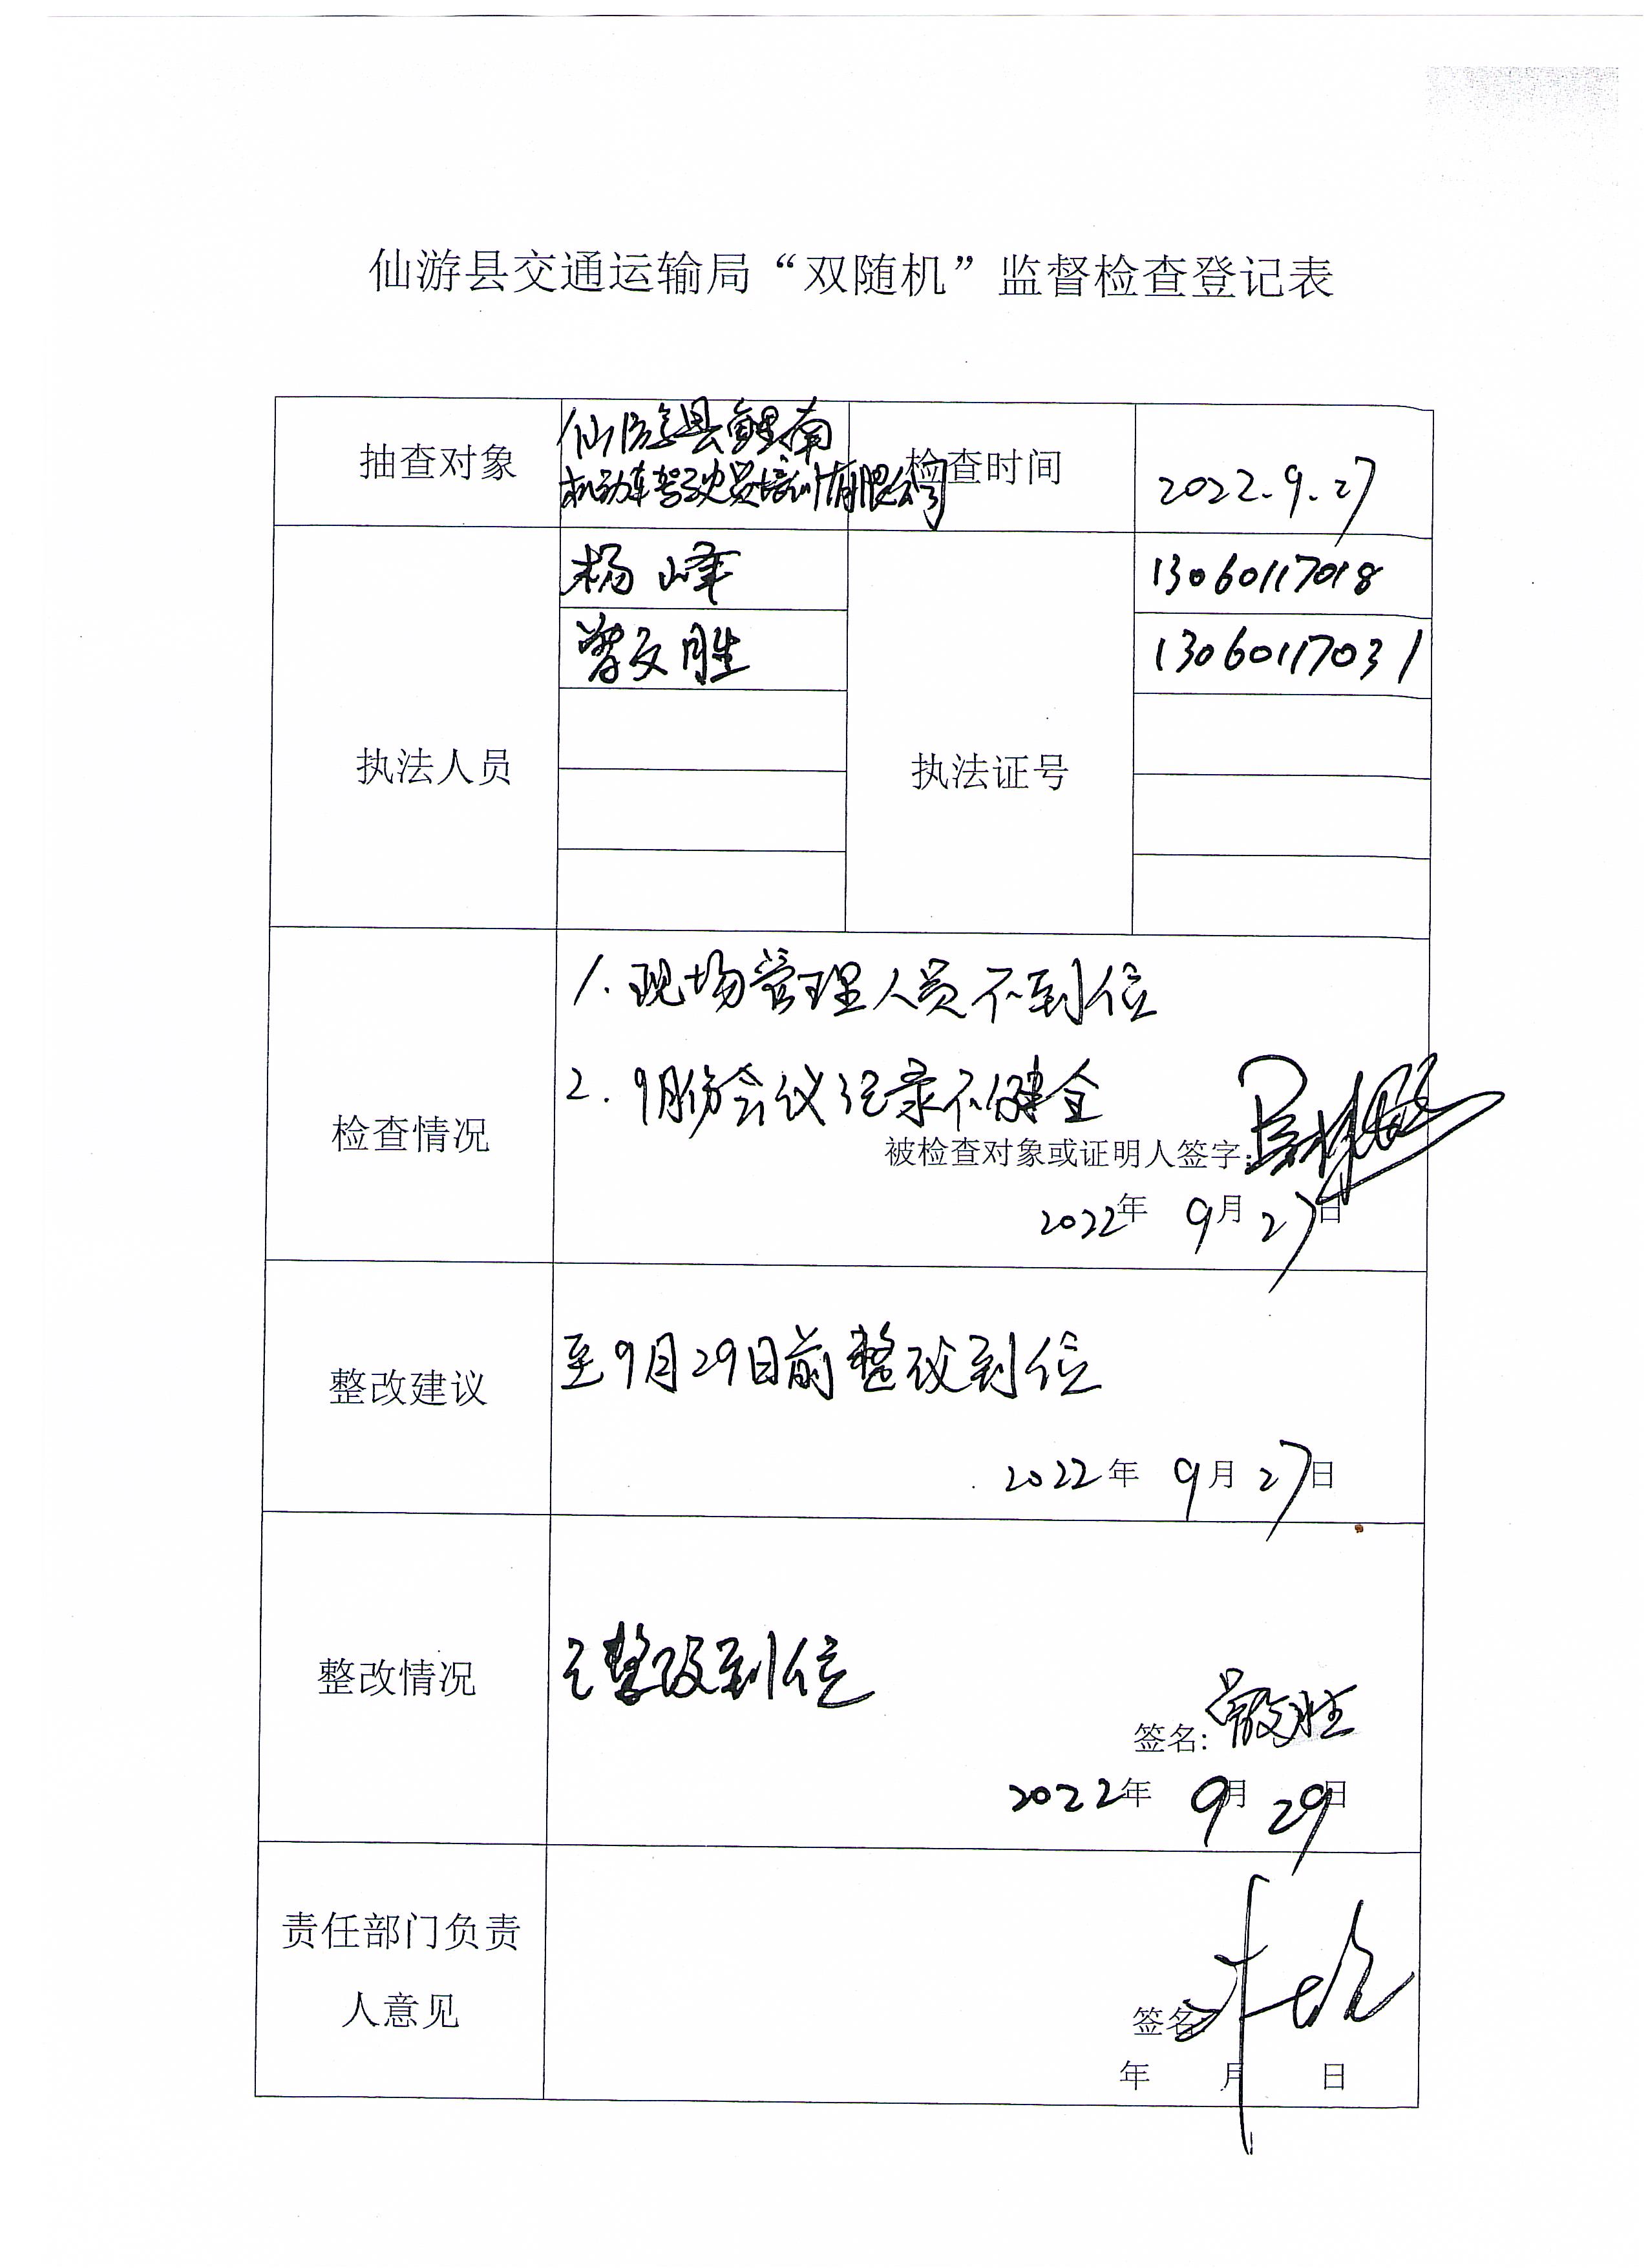 仙游县交通运输局“双随机”监督检查登记表
抽查对象
仙游县鲤南
机动车驾驶员培训有限公司
检查时间
2022.9.27
执法人员
杨峰
曾文胜
执法证号
13060117018
13060117031
检查情况
1.现场管理人员不到位
2.9月份会议记录不健全
被检查对象或证明人签字:
2022年 9月27日
整改建议
至9月29日前整改到位
2022年 9月27日
整改情况
已整改到位
签名:曾文胜
2022年 9月29日
责任部门负责
人意见
签名:
年 月 日